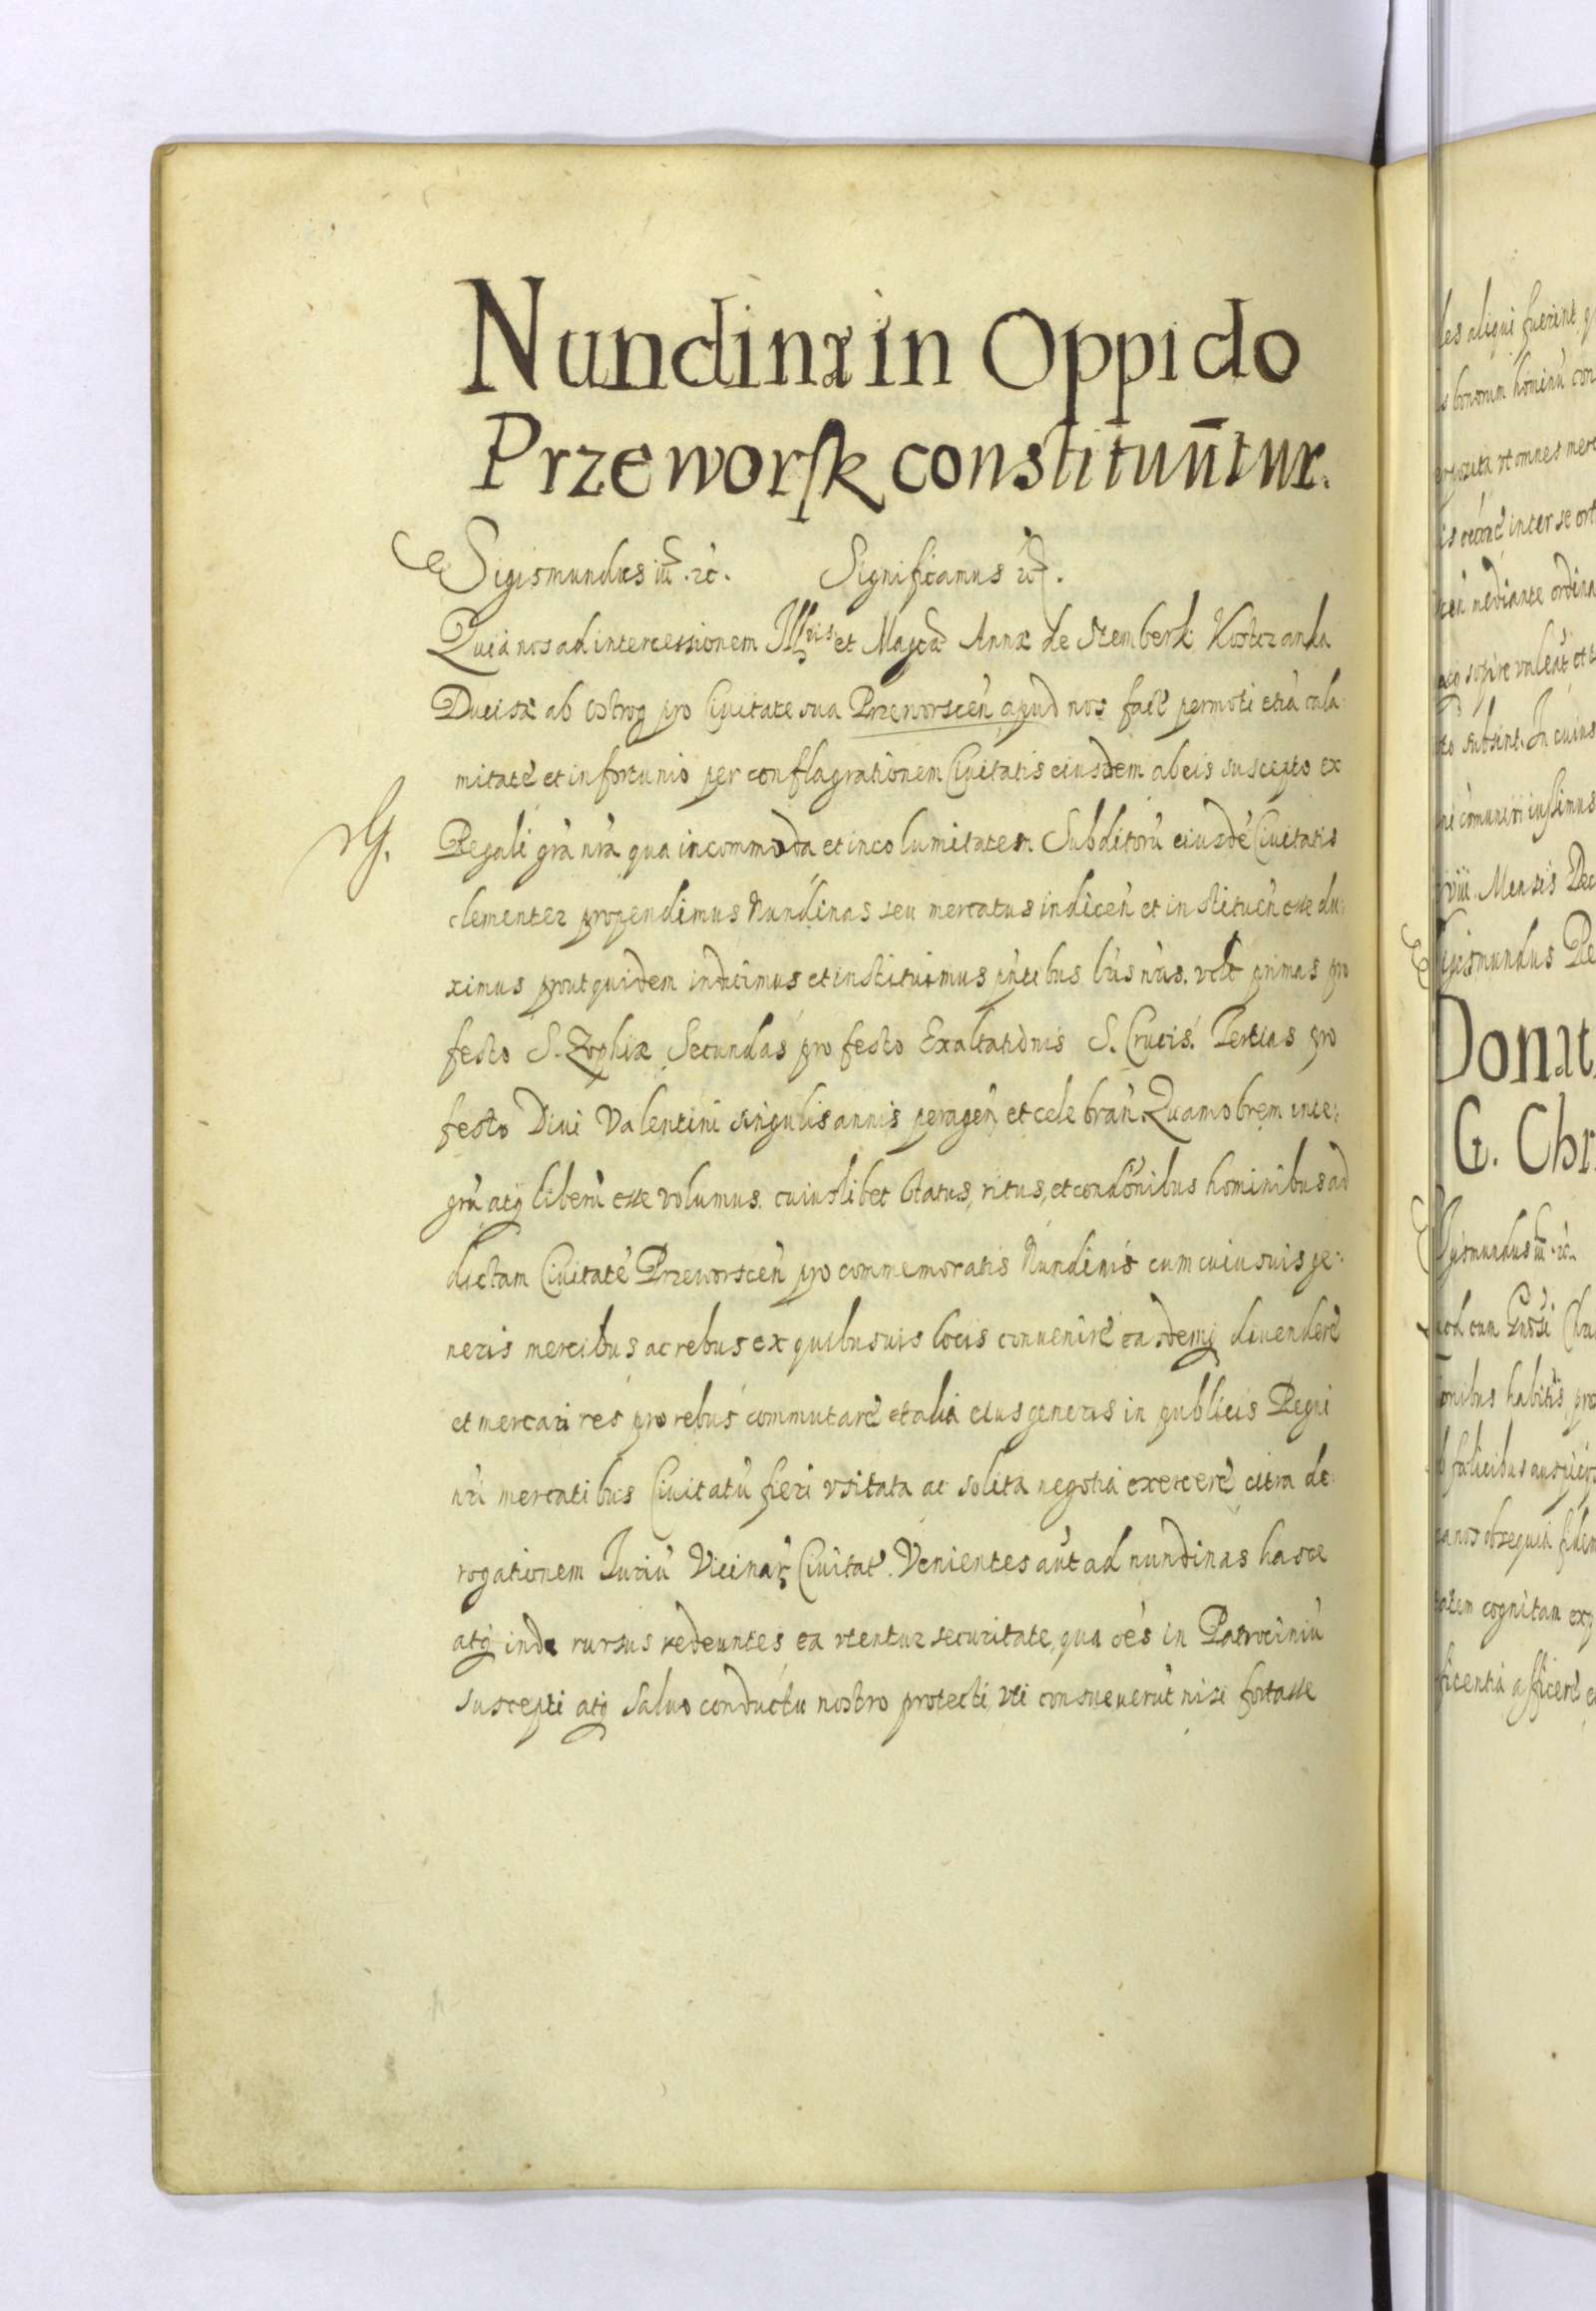 Nundinæ in Oppido
Przeworsk constituuntur.
Sigismundus iii. &c. Significamus &c.
Quia nos ad intercessionem Illris et Magcæ Annæ de Stemberk Kostczanka
Ducisæ ab Ostrog pro Ciuitate sua Przeworscen̄ apud nos fact permoti etiā cala-
mitatē et infortunio per conflagrationem Ciuitatis eiusdem ab eis suscepto ex
rG. Regali grā nrā qua in commoda et incolumitatem Subditorū eiusdē Ciuitatis
clementer propendimus Nundinas seu mercatus indicen̄ et instituen̄ esse du-
ximus prout quidem indicimus et instituimus pn̄tibus lris nris. vdt primas pro
festo S. Zophiæ Secundas pro festo Exaltationis S. Crucis. Tertias pro
festo Diui Valentini singulis annis peragen̄ et celebran̄. Quamobrem inte-
grū atq liberū esse volumus. cuiuslibet status, ritus, et condōnibus hominibus ad
dictam Ciuitatē Przeworscen̄ pro commemoratis Nundinis cum cuiusuis ge-
neris mercibus ac rebus ex quibusuis locis conuenire easdemq diuendere
et mercari res pro rebus commutare et alia eius generis in publicis Regni
nri mercatibus Ciuitatū fieri vsitata ac solita negotia exercere citra de-
rogationem Iuriū Vicinar Ciuitat. Venientes aūt ad nundinas hasce
atq inde rursus redeuntes ea vtentur securitate, qua oēs in Patrociniū
suscepti atq saluo conductu nostro protecti, vti consueuerūt nisi fortasse
les aliqui fuerint
bonorum hominū con
vt omnes merc
inter se ort
mediante ordina
sopire valeāt et
subsint. In cuius
cōmuniri iussimus
viii. Mensis Dec
igismundus Re
Donat
G. Chr
igismundus iii. &c.
onibus habitis pro
fælicibus auspicijs
obsequia fidem
cognitam exp
afficere